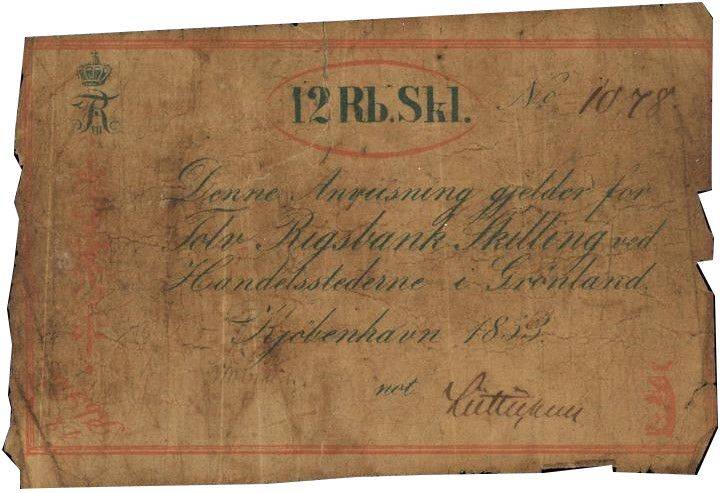 12 Rb. Skl.
No 1078.
Denne Anviisning gjelder for
Tolv Rigsbank Skilling ved
Handelsstederne i Grönland.
Kjöbenhavn 1853.
not